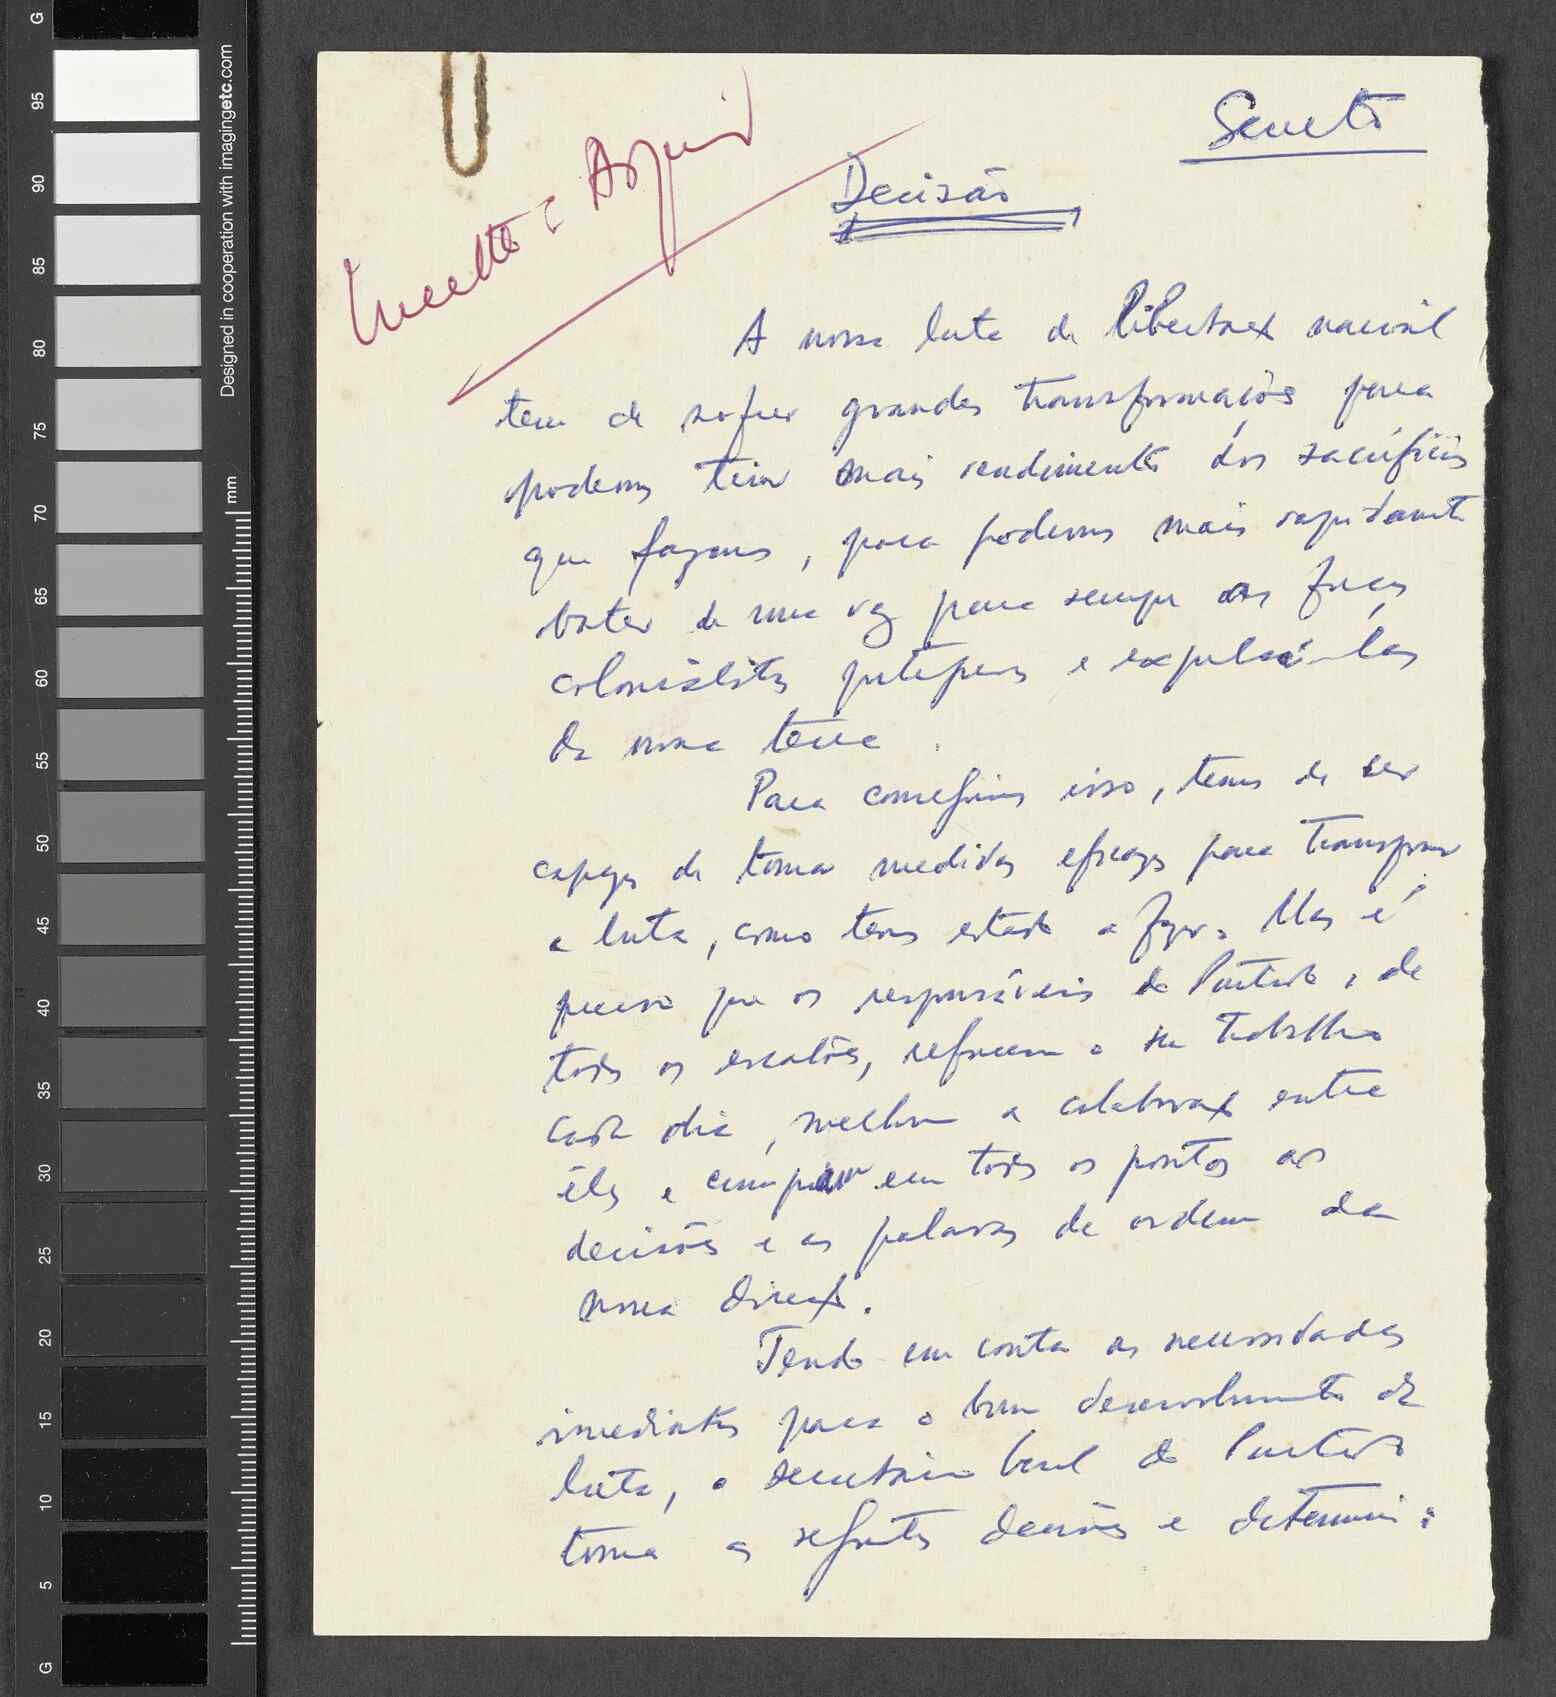 Secreto
Decisão
A nossa luta de libertação nacional
tem de sofrer grandes transformações para
podermos tirar mais rendimento dos sacrifícios
que fazemos, para podermos mais rapidamente
bater de uma vez para sempre as forças
colonialistas portuguesas e expulsá-las
da nossa terra.
Para conseguirmos isso, temos de ser
capazes de tomar medidas eficazes para transformar
a luta, como temos estado a fazer. Mas é
preciso que os responsáveis do Partido, de
todos os escalões, reforcem o seu trabalho
cada dia, melhorem a colaboração entre
êles e cumpram em todos os pontos as
decisões e as palavras de ordem da
nossa direcção.
Tendo em conta as necessidades
imediatas para o bom desenvolvimento da
luta, o secretário Geral do Partido
toma as seguintes decisões e determina:
G
95
90
85
80
75
70
65
60
55
50
45
40
35
30
25
20
15
10
5
G
Designed in cooperation with imagingetc.com
mm